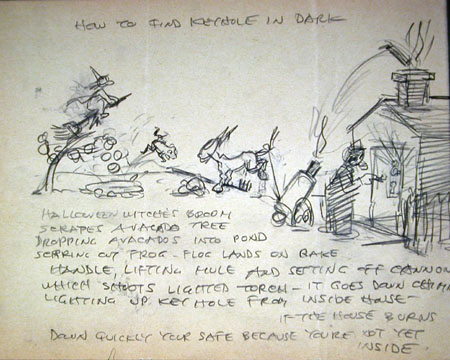 HOW TO FIND KEYHOLE IN DARK
HALLOWEEN WITCHES BROOM
SCRAPES AVACADO TREE
DROPPING AVACADOS INTO POND
SCARING OUT FROG - FROG LANDS ON RAKE
HANDLE, LIFTING MULE AND SETTING OFF CANNON
WHICH SHOOTS LIGHTED TORCH - IT GOES DOWN CHIM
LIGHTING UP KEYHOLE FROM INSIDE HOUSE -
IF THE HOUSE BURNS
DOWN QUICKLY YOUR SAFE BECAUSE YOU'RE NOT YET
INSIDE.